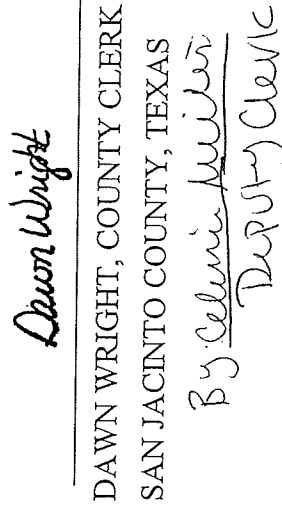 Dawn Wright
DAWN WRIGHT, COUNTY CLERK
SAN JACINTO COUNTY, TEXAS
By
Deputy Clerk